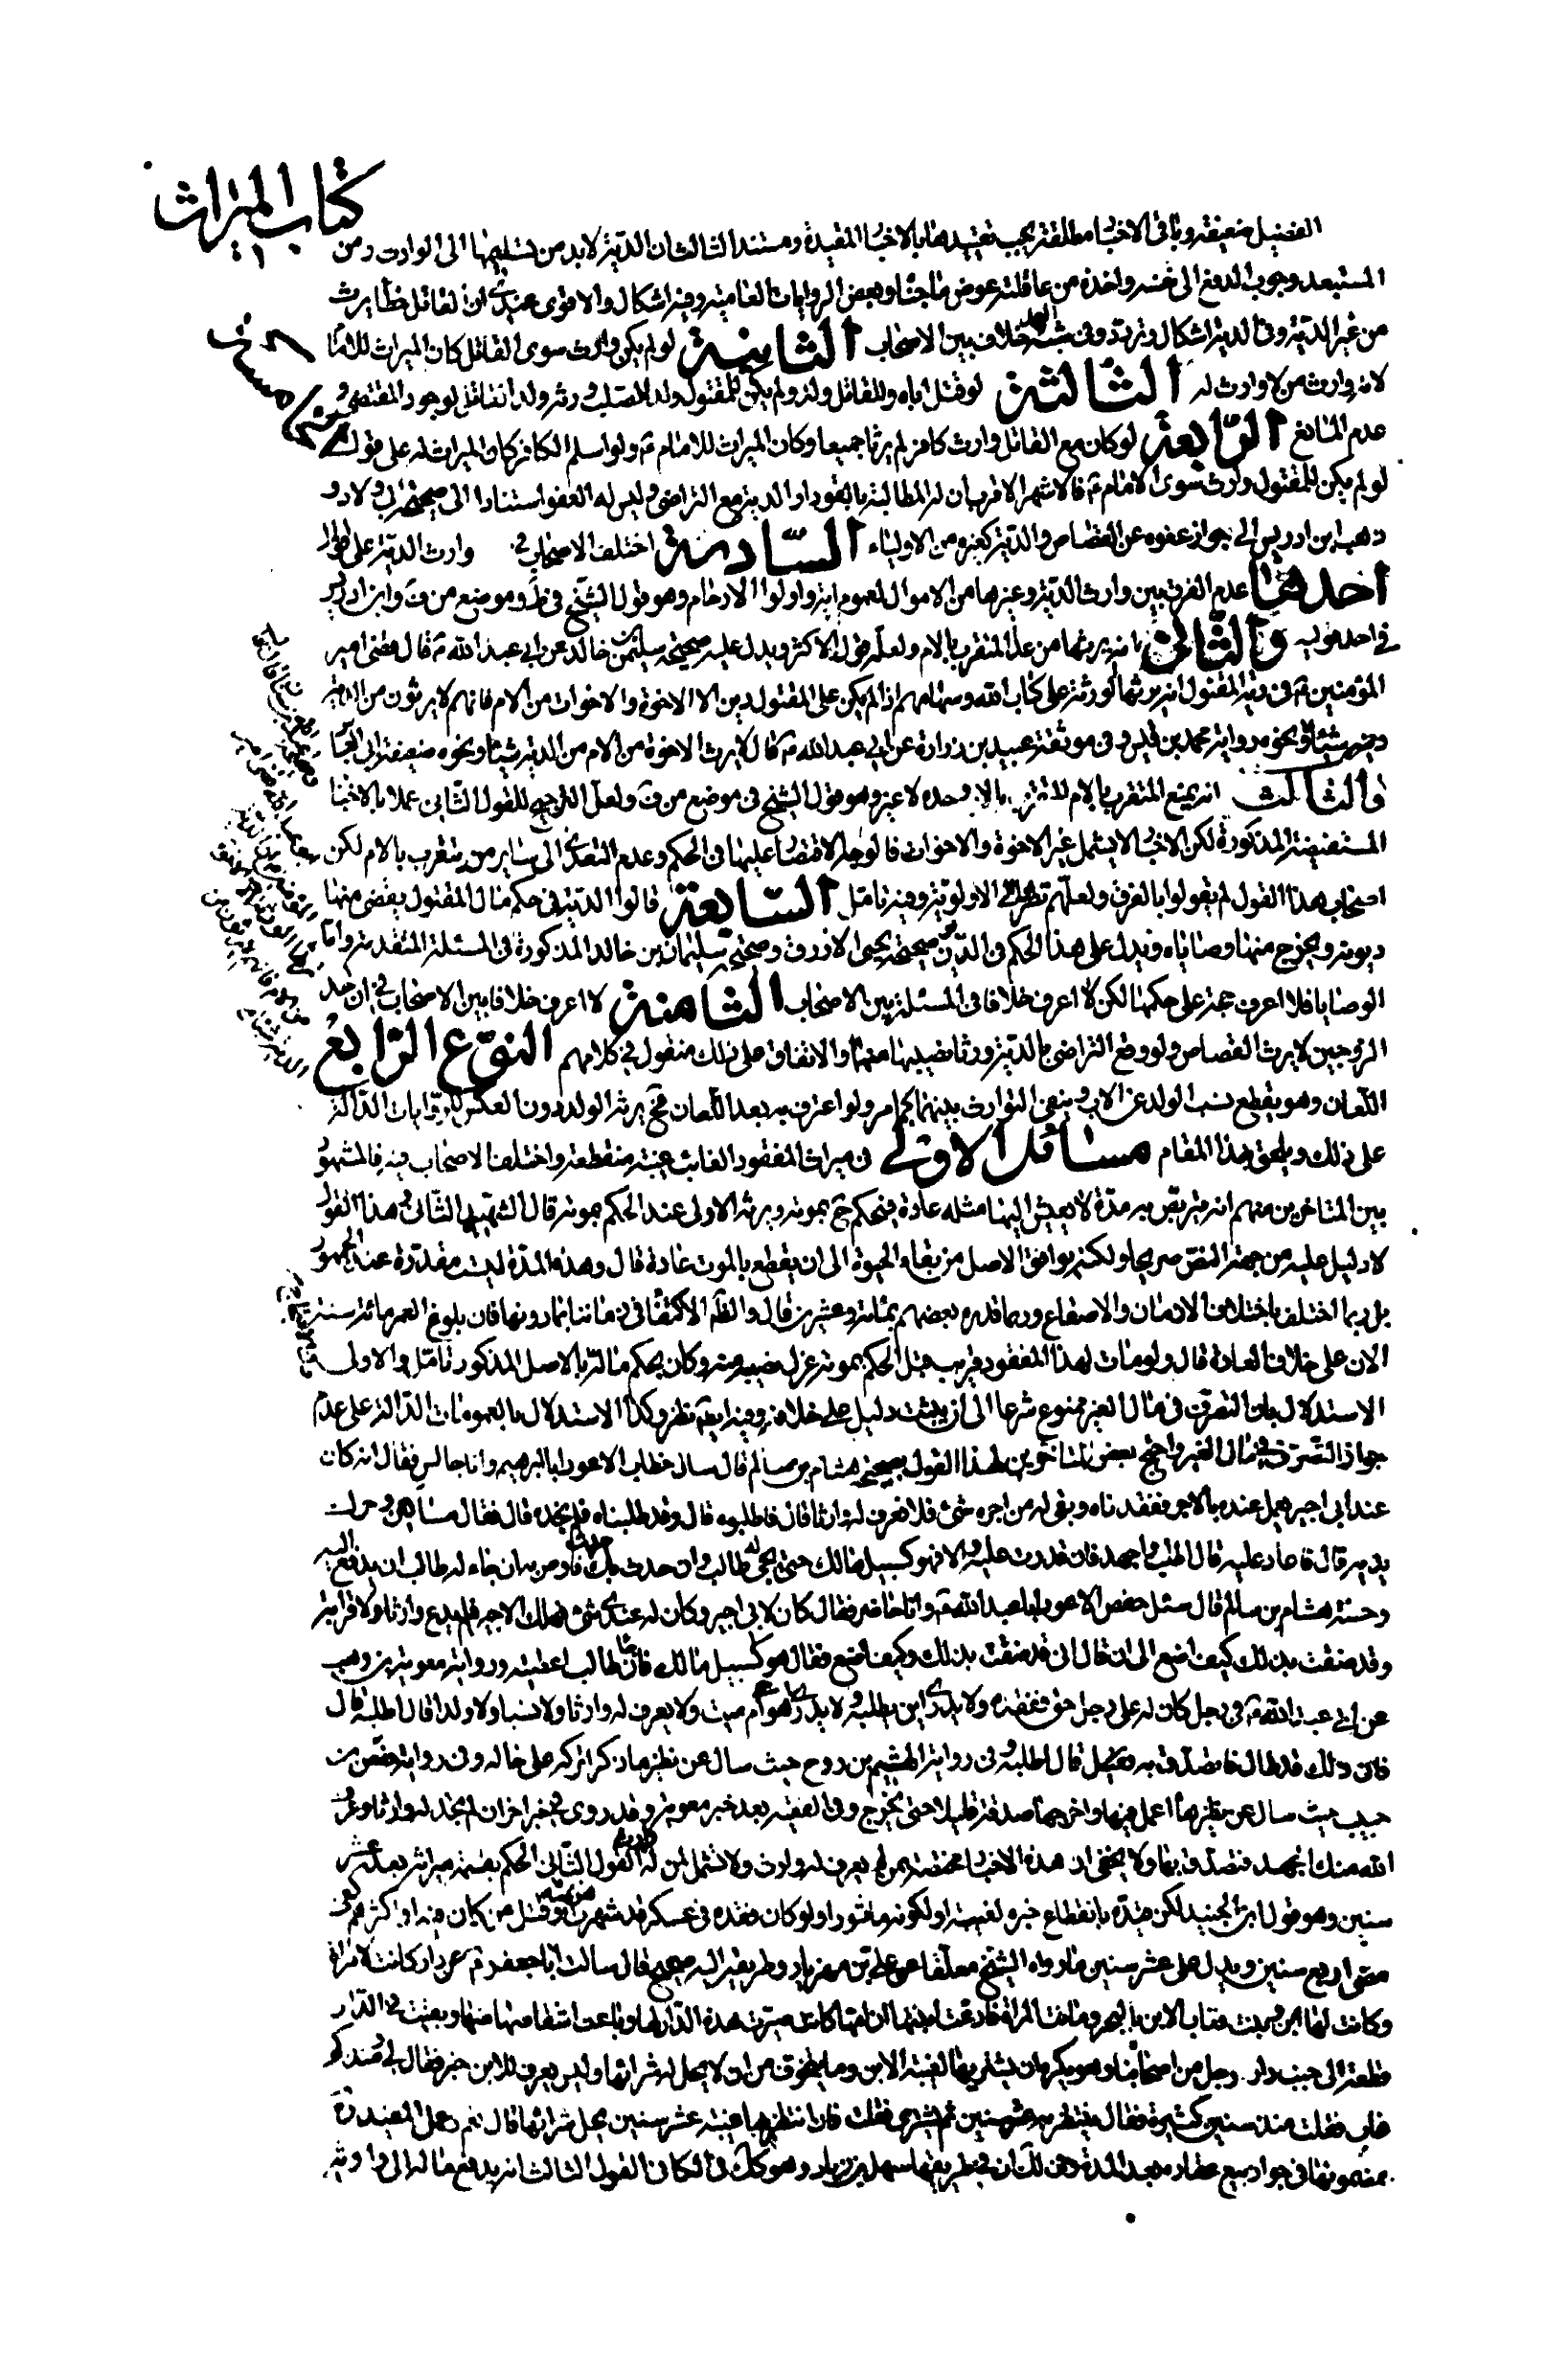 كتاب الميراث
الفضيل ضعيفة وباقى الاخبار مطلقة يجب تقييدها بالاخبار المقيدة ومستند الثالث ان الدية لابد من تسليمها الى الوارث ومن
المستبعد وجوب الدفع الى نفسه واخذه من عاقلته عوض ما جنا وبعض الروايات العامية وفيه اشكال والاقوى عندى ان القاتل خطأ يرث
من غير الدية وفى الدية اشكال وتردد وفى شبه العمد خلاف بين الاصحاب الثانية لو لم يكن وارث سوى القاتل كان الميراث للامام
لانه وارث من لا وارث له الثالثة لو قتل اباه وللقاتل ولد ولم يكن للمقتول ولد للصلب ورثه ولد القاتل لوجود المقتضى و
عدم المانع الرابعة لو كان مع القاتل وارث كافر لم يرثا جميعا وكان الميراث للامام ع ولو اسلم الكافر كان الميراث له على قول
لو لم يكن للمقتول وارث سوى الامام ع فالاشهر الاقرب ان له المطالبة بالقود او الدية مع التراضى وليس له العفو استنادا الى صحيحة ابى ولاد و
ذهب ابن ادريس الى جواز عفوه عن القصاص والدية كغيره من الاولياء السادسة اختلف الاصحاب فى وارث الدية على اقوال
احدها عدم الفرق بين وارث الدية وغيرها من الاموال لعموم اية واولوا الارحام وهو قول الشيخ فى ط وموضع من ف وابن ادريس
فى احد قوليه والثانى انه يرثها من عدا المتقرب بالام ولعله قول الاكثر ويدل عليه صحيحة سليمن بن خالد عن ابى عبد الله ع قال قضى امير
المؤمنين ع فى دية المقتول انه يرثها الورثة على كتاب الله وسهامهم اذا لم يكن على المقتول دين الا الاخوة والاخوات من الام فانهم لا يرثون من الدية
ديته شيئا ونحوه رواية محمد بن قيس وفى موثقة عبيد بن زرارة عن ابى عبد الله ع قال لا يرث الاخوة من الام من الدية شيئا ونحوه ضعيفة ابى العباس
والثالث انه يمنع المتقرب بالام بالاب وحده لا غير وهو قول الشيخ فى موضع من ف ولعل الترجيح للقول الثانى عملا بالاخبار
المستفيضة المذكورة لكن الاخبار لا يشمل غير الاخوة والاخوات فالوجه الاقتصار عليها فى الحكم وعدم التعدى الى ساير من يتقرب بالام لكن
اصحاب هذا القول لم يقولوا بالفرق ولعلهم نظرا الى الاولوية وفيه تامل السابعة قالوا الدية فى حكم مال المقتول يقضى منها
ديونه ويخرج منها وصاياه ويدل على هذا الحكم فى الدين صحيحة يحيى الازرق وصحيحة سليمان بن خالد المذكورة فى المسئلة المتقدمة واما
الوصايا فلا اعرف حجة على حكمها لكن لا اعرف خلافا فى المسئلة بين الاصحاب الثامنة لا اعرف خلافا بين الاصحاب فى ان احد
الزوجين لا يرث القصاص ولو وقع التراضى بالدية ورثا نصيبهما منها والاتفاق على ذلك منقول فى كلامهم النوع الرابع
اللعان وهو يقطع نسب الولد عن الاب وينفى التوارث بينهما كما مر ولو اعترف به بعد اللعان فح يرثه الولد دون العكس للروايات الدالة
على ذلك ويلحق بهذا المقام مسائل الاولى فى ميراث المفقود الغايب غيبة منقطعة واختلف الاصحاب فيه فالمشهور
بين المتاخرين منهم انه يتربص به مدة لا يعيش اليها مثله عادة فيحكم ح بموته ويرثه الاولى عند الحكم بموته قال الشهيد الثانى هذا القول
لا دليل عليه من جهة النص صريحا ولكنه يوافق الاصل من بقاء الحيوة الى ان يقطع بالموت عادة قال وهذه المدة ليست مقدرة عند الجمهور
بل ربما اختلف باختلاف الازمان والاصقاع وربما قدره بعضهم بمائة وعشرين قال والظ الاكتفاء فى زماننا بما دونها فان بلوغ العمر مائة سنة
الان على خلاف العادة قال ولو مات لهذا المفقود قريب قبل الحكم بموته عزل نصيبه منه وكان بحكم ماله بالاصل المذكور تامل والاولى
الاستدلال بان التصرف فى مال الغير ممنوع شرعا الى ان يثبت دليل على خلافه وفيه ايضا نظر وكذا الاستدلال بالعمومات الدالة على عدم
جواز التصرف فى مال الغير واحتج بعض المتاخرين لهذا القول بصحيحة هشام بن سالم قال سال خطاب الاعور ابا ابرهيم وانا جالس فقال انه كان
عند ابى اجير يعمل عنده بالاجر ففقدناه وبقى له من اجره شئ فلا نعرف له وارثا قال فاطلبوه قال وقد طلبناه فلم نجده قال فقال مساكين وحرك
يديه قال فاعاد عليه قال اطلب واجهد فان قدرت عليه والا فهو كسبيل مالك حتى يجئ له طالب وان حدث بك حدث فاوص به ان جاء له طالب ان يدفع اليه
وحسنة هشام بن سالم قال سئل حفص الاعور ابا عبد الله ع وانا حاضر فقال كان لابى اجير وكان له عندى شئ فهلك الاجير فلم يدع وارثا ولا قرابة
وقد ضقت بذلك كيف اصنع الى ان قال انى قد ضقت بذلك وكيف اصنع فقال هو كسبيل مالك فان جاء طالب اعطيته ورواية معوية بن وهب
عن ابى عبد الله ع فى رجل كان له على رجل حق ففقده ولا يدرى اين يطلبه ولا يدرى احى هو ام ميت ولا يعرف له وارثا ولا نسبا ولا ولدا قال اطلبه قال
فان ذلك قد طال فاتصدق به قال اطلبه وفى رواية الهيثم بن روح حيث سال عن نظير ما ذكر اتركه على حاله وفى رواية نصر بن
حبيب حيث سال عن نظيرها اعمل فيها واخرجها صدقة قليلا حتى يخرج وفى الفقيه بعد خبر معوية وقد روى فى خبر اخر ان لم تجد له وارثا وعرف
الله منك الجهد فتصدق بها ولا يخفى ان هذه الاخبار مختصة بمن لم يعرف له وارث ولا تشمل لمن له وارث القول الثانى الحكم بقسمة ميراثه بعد عشر
سنين وهو قول ابن الجنيد لكن قيده بانقطاع خبره لغيبته او لكونه ماسورا ولو كان فقده فى عسكر قد شهرت هزيمته وقتل من كان فيه او اكثرهم كفى
مضى اربع سنين ويدل على عشر سنين ما رواه الشيخ معلقا عن على بن مهزيار وطريقه اليه صحيح قال سالت ابا جعفر ع عن دار كانت لامراة
وكانت لها ابن وبنت فغاب الابن بالبحر وماتت المراة فادعت ابنتها ان امها كانت صيرت هذه الدار لها وباعت اشقاصا منها وبقيت فى الدار
قطعة الى جنب دار رجل من اصحابنا وهو يكره ان يشتريها لغيبة الابن وما يتخوف من ان لا يحل له شرائها وليس يعرف للابن خبر فقال لى ومنذ كم
غاب فقلت منذ سنين كثيرة فقال ينتظر به عشر سنين ثم يشترى فقلت فاذا انتظر بها غيبته عشر سنين يحل شرائها قال نعم وعمل المفيد ره
بمضمونها فى جواز بيع عقاره بعد المدة وفى طريقها سهل بن زياد وهو كك فى الكافى القول الثالث انه يدفع ماله الى وارثه